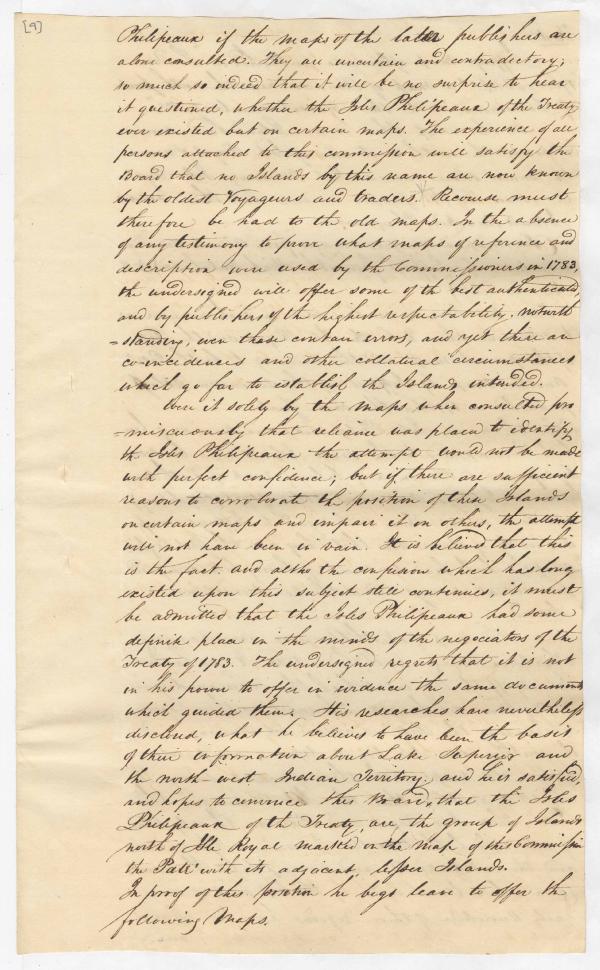 [9]
Philipeaux if the maps of the later publishers are
alone consulted. They are uncertain and contradictory;
so much so indeed that it will be no surprise to hear
it questioned, whether the Isles Philipeaux of the Treaty
ever existed but on certain maps. The experience of all
persons attached to this commission will satisfy the
Board that no Islands by this name are now known
by the oldest Voyageurs and traders. Recourse must
therefore be had to the old maps. In the absence
of any testimony to prove what maps of reference and
description were used by the Commissioners in 1783,
the undersigned will offer some of the best authenticated,
and by publishers of the highest respectability. Notwith
=standing, even these contain errors, and yet there are
co-incidences and other collateral circumstances
which go far to establish the Islands intended.
Were it solely by the maps when consulted pro
=miscuously that reliance was placed to identify
the Isles Philipeaux the attempt would not be made
with perfect confidence; but if there are sufficient
reasons to corroborate the position of these Islands
on certain maps and impair it on others, the attempt
will not have been in vain. It is believed that this
is the fact. and altho the confusion which has long
existed upon this subject still continues, it must
be admitted that the Isles Philipeaux had some
definite place in the minds of the negociators of the
Treaty of 1783. The undersigned regrets that it is not
in his power to offer in evidence the same documents
which guided them. His researches have nevertheless
disclosed, what he believes to have been the basis
of their information about Lake Superior and
the north-west Indian Territory; and he is satisfied,
and hopes to convince this Board, that the Isles
Philipeaux of the Treaty, are the group of Islands
north of Isle Royal marked on the map of the Commission
the Paté with its adjacent, lesser Islands.
In proof of this position he begs leave to offer the
following Maps.